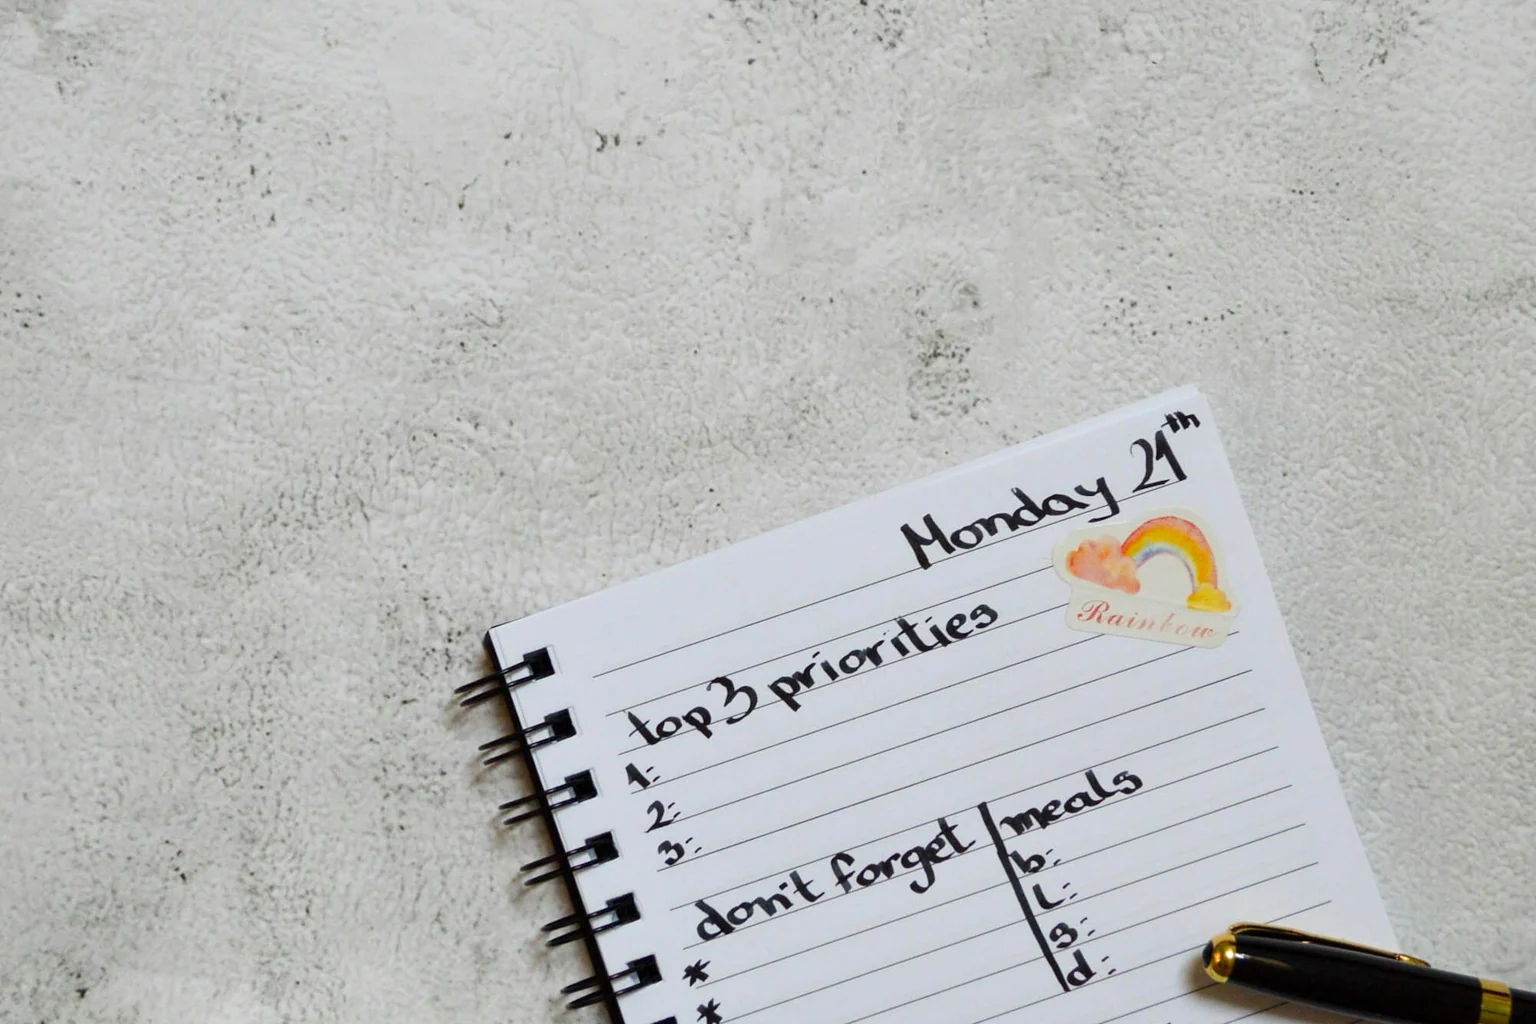 Monday 21th
Rainbow
top 3 priorities
1:
2:
3:
don't forget
*
*
meals
b:
L:
s:
d: